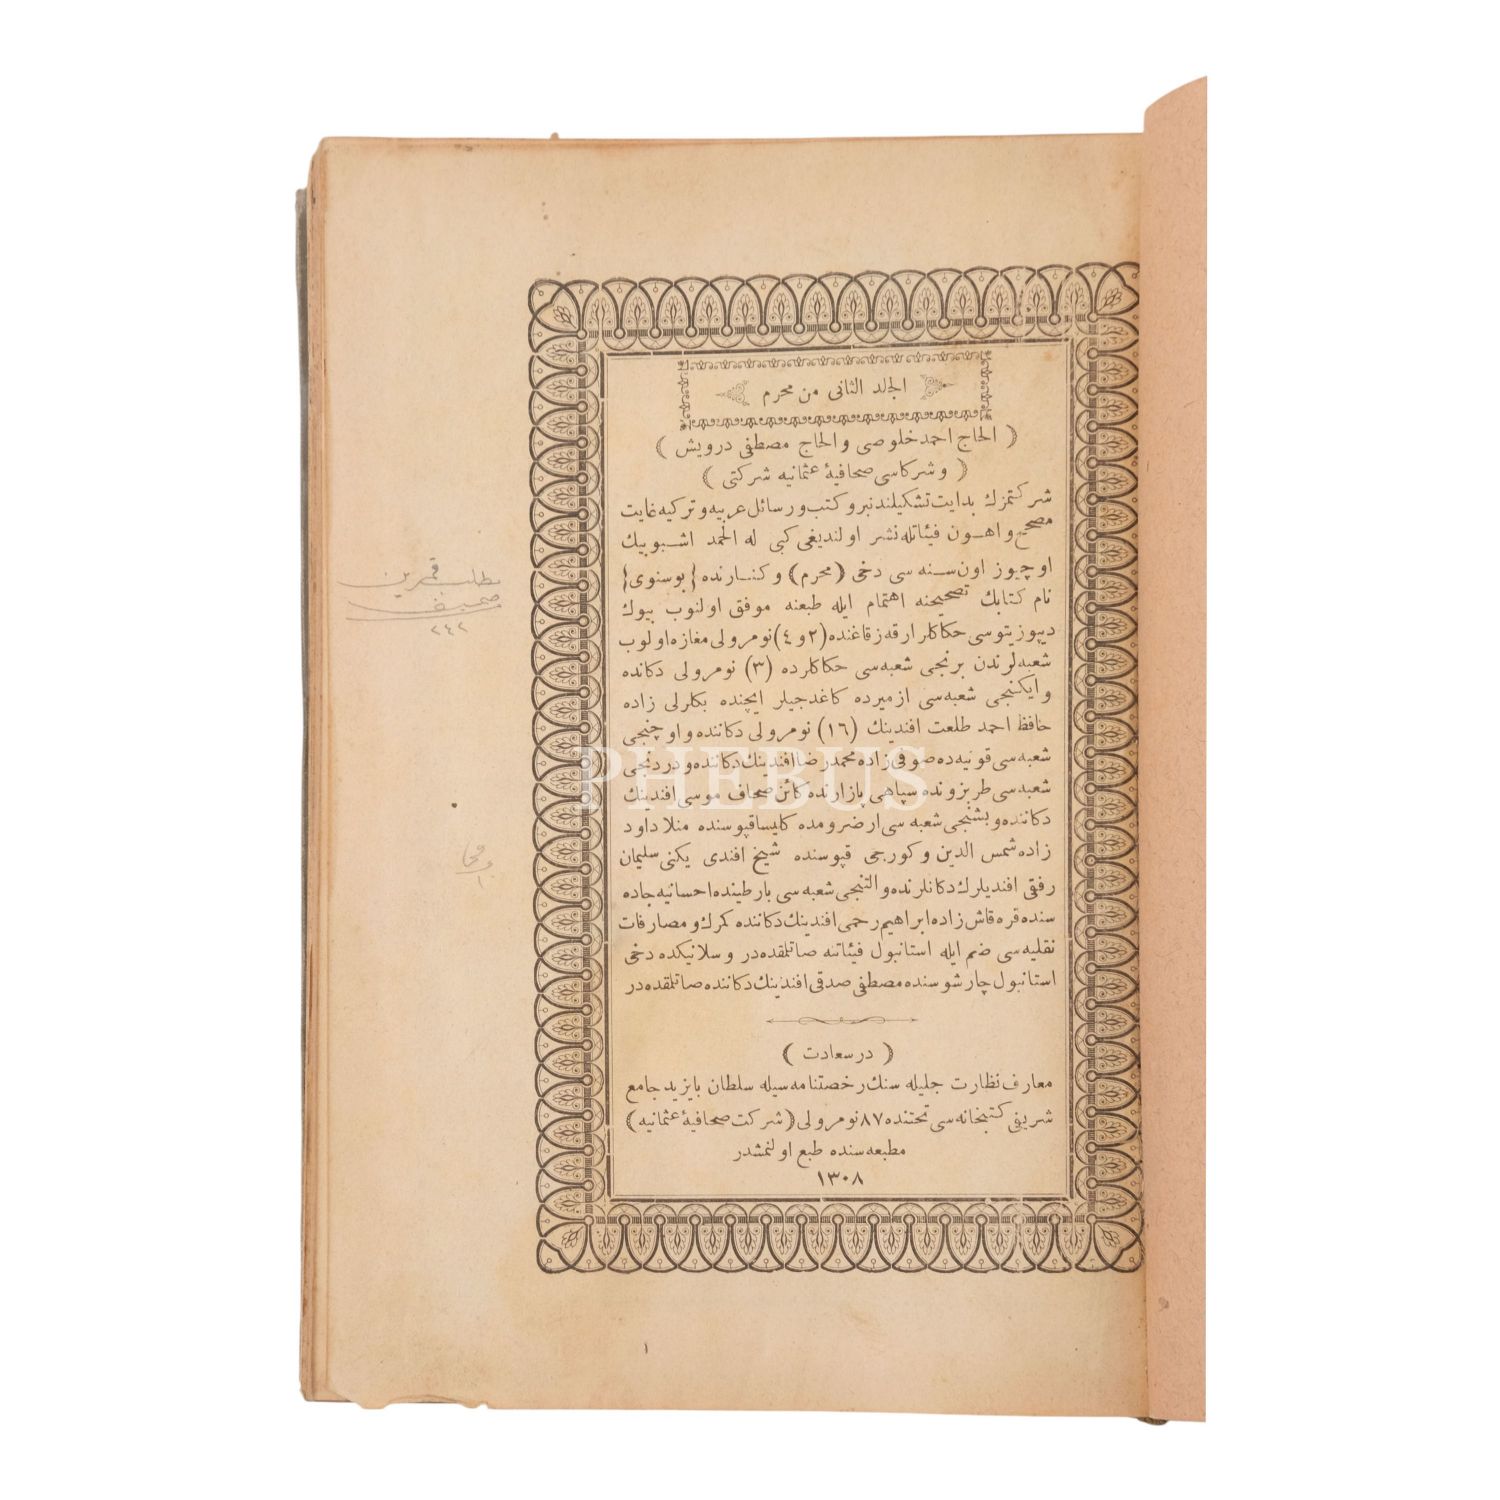 الجلد الثانى من محرم
( الحاج احمد خلوصى و الحاج مصطفى درويش )
( و شركاسى صحافيهٔ عثمانيه شركتى )
شركتمزك بدايت تشكيلندنبرو كتب و رسائل عربيه و تركيه غايت
مصحح و اهون فيئاتله نشر اولنديغى كبى له الحمد اشبو بيك
اوچيوز اون سنه سى دخى (محرم) و كنارنده {بوسنوى}
نام كتابك تصحيحنه اهتمام ايله طبعنه موفق اولنوب بيوك
ديپوزيتوسى حكاكلر ارقه زقاغنده (٢ و ٤) نومرولى مغازه اولوب
شعبه لرندن برنجى شعبه سى حكاكلرده (٣) نومرولى دكانده
و ايكنجى شعبه سى ازميرده كاغدجيلر ايچنده بكلرلى زاده
حافظ احمد طلعت افندينك (١٦) نومرولى دكاننده و اوچنجى
شعبه سى قونيه ده صوفى زاده محمد رضا افندينك دكاننده و دردنجى
شعبه سى طربزونده سپاهى پازارنده كائن صحاف موسى افندينك
دكاننده و بشنجى شعبه سى ارضرومده كليسا قپوسنده منلا داود
زاده شمس الدين و كورجى قپوسنده شيخ افندى يكنى سليمان
رفقى افنديلرك دكانلرنده و التنجى شعبه سى بارطينده احسانيه جاده
سنده قره قاش زاده ابراهيم رحمى افندينك دكاننده كمرك و مصارفات
نقليه سى ضم ايله استانبول فيئاتنه صاتلمقده در و سلانيكده دخى
استانبول چارشوسنده مصطفى صدقى افندينك دكاننده صاتلمقده در
( در سعادت )
معارف نظارت جليله سنك رخصتنامه سيله سلطان بايزيد جامع
شريفى كتبخانه سى تحتنده ٨٧ نومرولى (شركت صحافيهٔ عثمانيه)
مطبعه سنده طبع اولنمشدر
١٣٠٨
مطلب قمرين
صحيفه
٢٤٢
١
PHEBUS